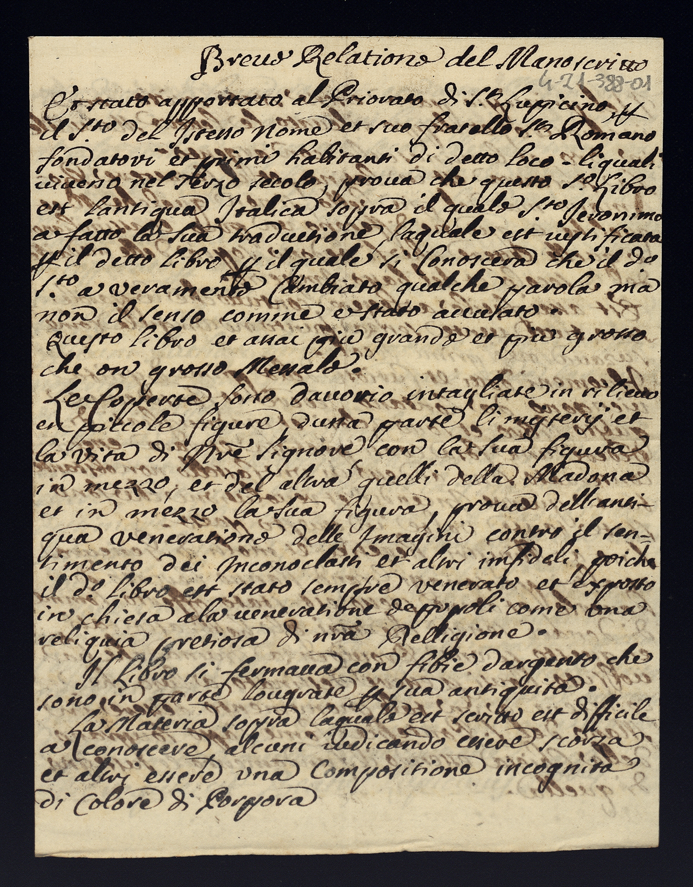 Breve Relatione del Manoscritto
4-21-388-01
Er stato apportato al Priorato di Sto Lupicino, p
il Sto del Istesso Nome et suo fratello Sto Romano
fondatori et primi habitanti di detto loco - liquali
vivevo nel terzo secolo, prova che questo Sto Libro
est lantiqua Italica sopra il quale Sto Jeronimo
a fatto la sua traductione, laquale est iustificata
p il detto libro p il quale si Conoscera che il do
Sto a veramente Cambiato qualche parola ma
non il senso comme e stato accusato.
Questo libro et assai piu grande et piu grosso
che on grosso Messale.
Le Coperte sono davorio intagliate in rilievo
en piccole figure duna parte li mysterÿ et
la vita di Nrē Signore con la sua figura
in mezzo, et del altra quelli della Madona
et in mezzo la sua figura, prova dellanti-
qua veneratione delle Imagini contro il sen-
timento dei Inconoclasti et altri infideli, poiche
il do Libro est stato sempre venerato et exposto
in chiesa ala veneratione de popoli come una
reliquia pretiosa di nrā Relligione.
Il Libro si fermava con fibie dargento che
sono in parte lougrate p sua antiquita.
La Materia sopra laquale est scritto est difficile
a conoscere alcuni iudicando essere scorza
et altri essere una Compositione incognita
di Colore di Porpora